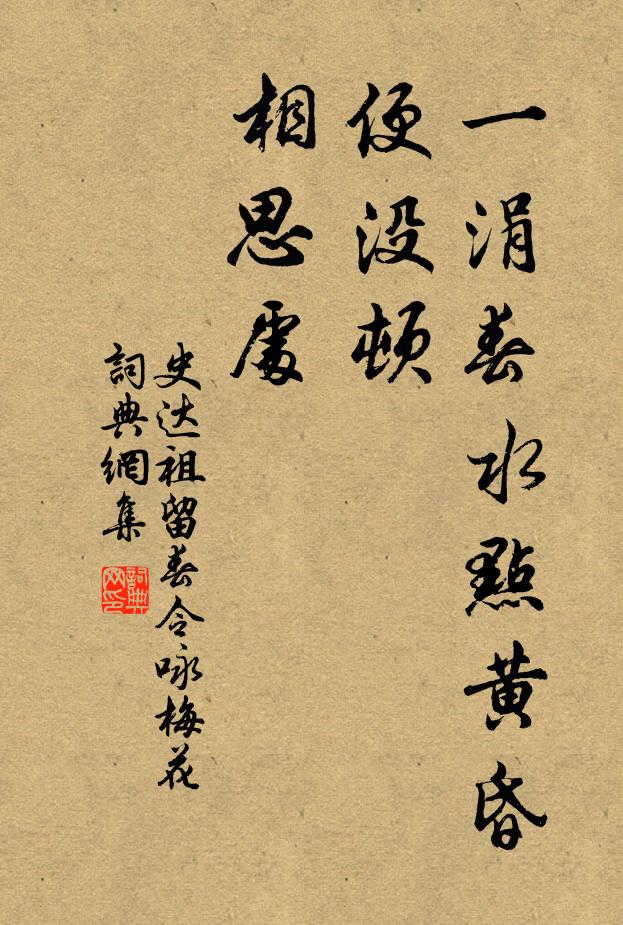 一涓春水點黄昏
便没頓
相思處
史达祖留春令咏梅花
詞典網集
詞典网印